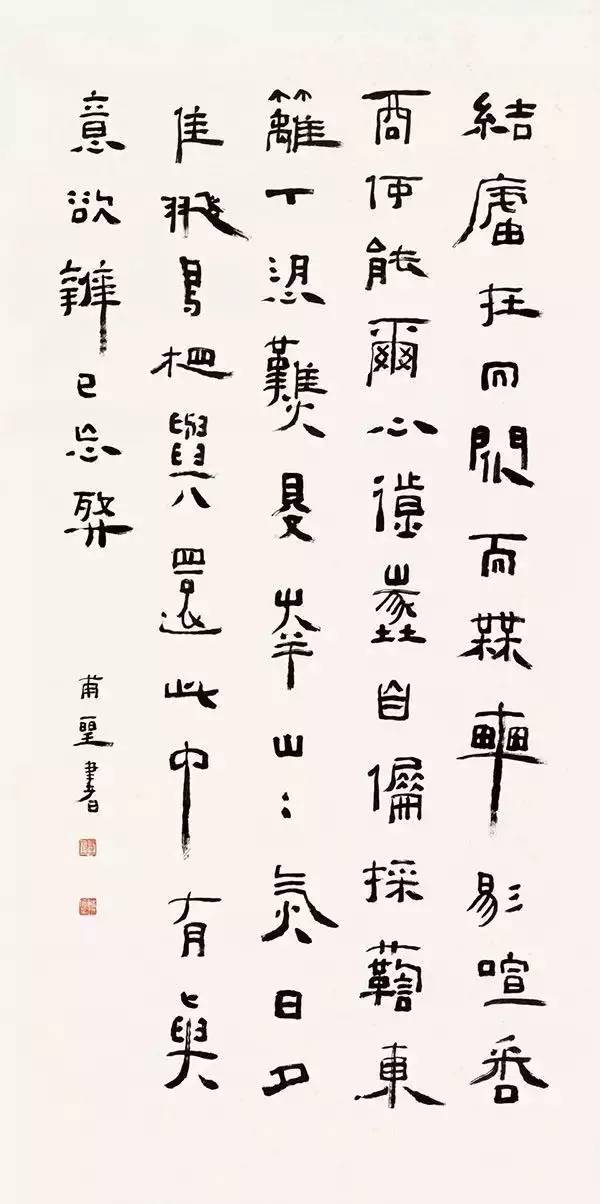 結廬在人境而無車馬喧問
君何能爾心遠地自偏採菊東
籬下悠然見南山〻氣日夕
佳飛鳥相與還此中有真
意欲辨已忘言
甫聖書